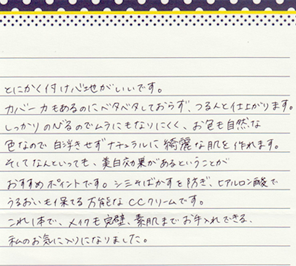 とにかく付け心地がいいです。
カバー力もあるのにベタベタしておらず、つるんと仕上がります。
しっかりのびるのでムラにもなりにくく、お色も自然な
色なので白浮きせずナチュラルに綺麗な肌を作れます。
そしてなんといっても、美白効果があるということが
おすすめポイントです。シミそばかすを防ぎ、ヒアルロン酸で
うるおいも保てる万能なCCクリームです。
これ1本で、メイクも完璧、素肌までお手入れできる、
私のお気に入りになりました。